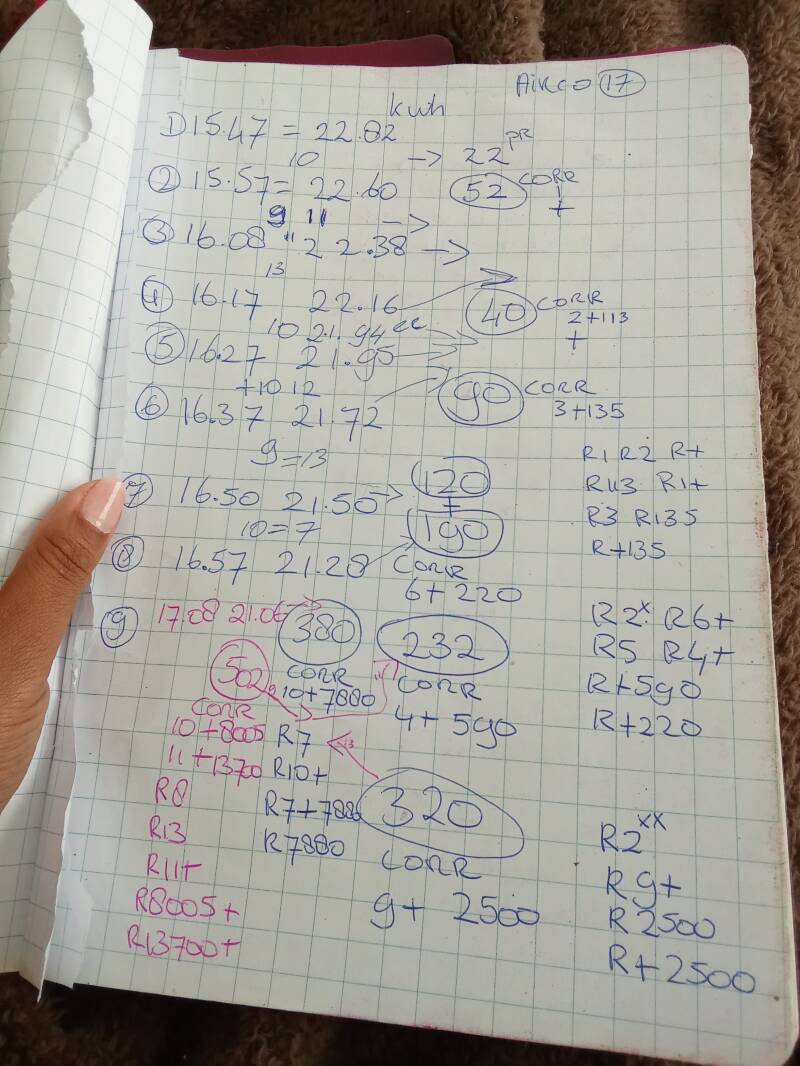 Airco 17
kwh
1) 15.47 = 22.82
10 → 22 PR
2 15.57 = 22.60 52 CORR
+
9 11 →
3 16.08 " 22.38 →
13
4 16.17 22.16 40 CORR
2+113
+
10 21.94
5 16.27 21.95
+10 12
6 16.37 21.72 90 CORR
3+135
9=13
R1 R2 R+
R113 R1+
R3 R135
R+135
7 16.50 21.50 → 120
+
10=7 190
8 16.57 21.28 CORR
6+220
9 17.08 21.06 → 380 232
502 CORR CORR
10+7880 4+590
R2x R6+
R5 R4+
R+590
R+220
CORR
10+8005 R7
11+13700 R10+
R8 R7+7880 320
R13 R7880 CORR
R11+ 9+2500
R8005+
R13700+
R2xx
R9+
R2500
R+2500